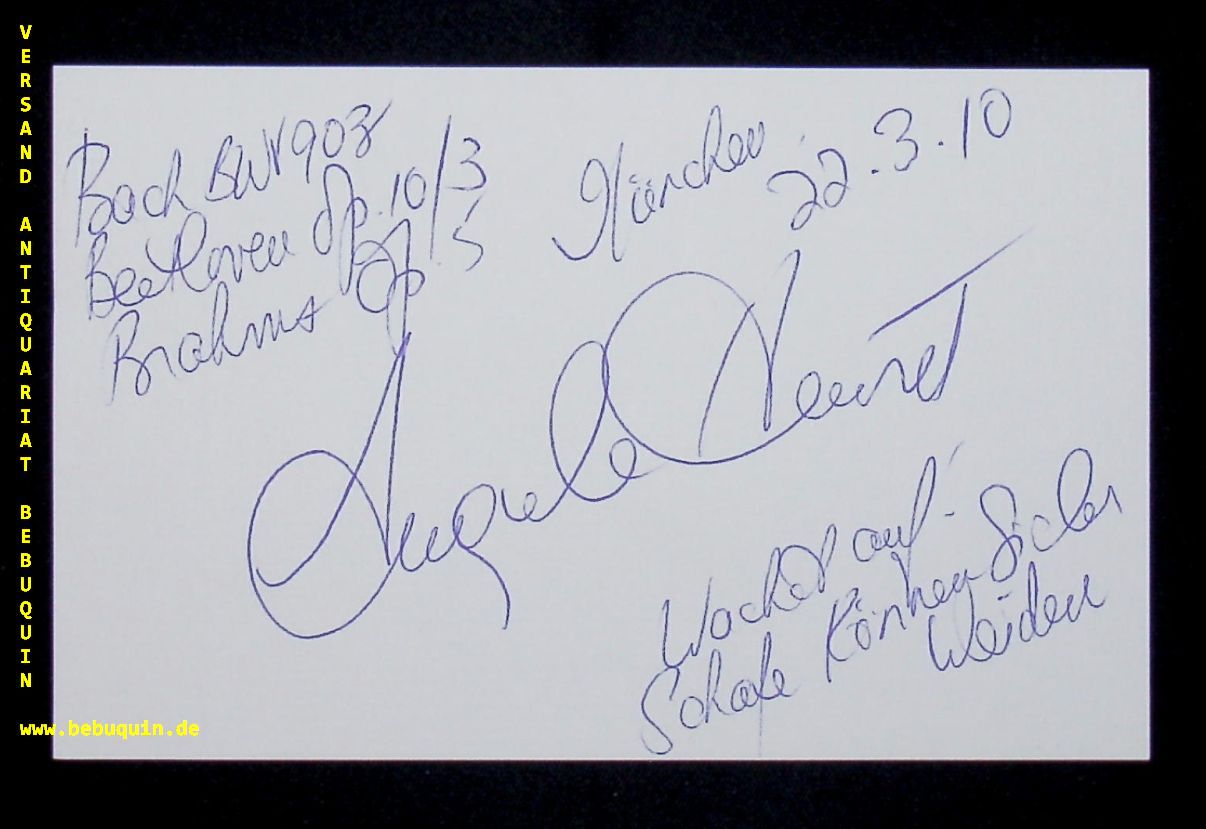 VERSAND ANTIQUARIAT BEBUQUIN
www.bebuquin.de
Bach BWV 903
Beethoven Op. 10/3
Brahms Op. 5
München
22.3.10
Angela Hewitt
Wachet auf
Schafe können Sicher
Weiden